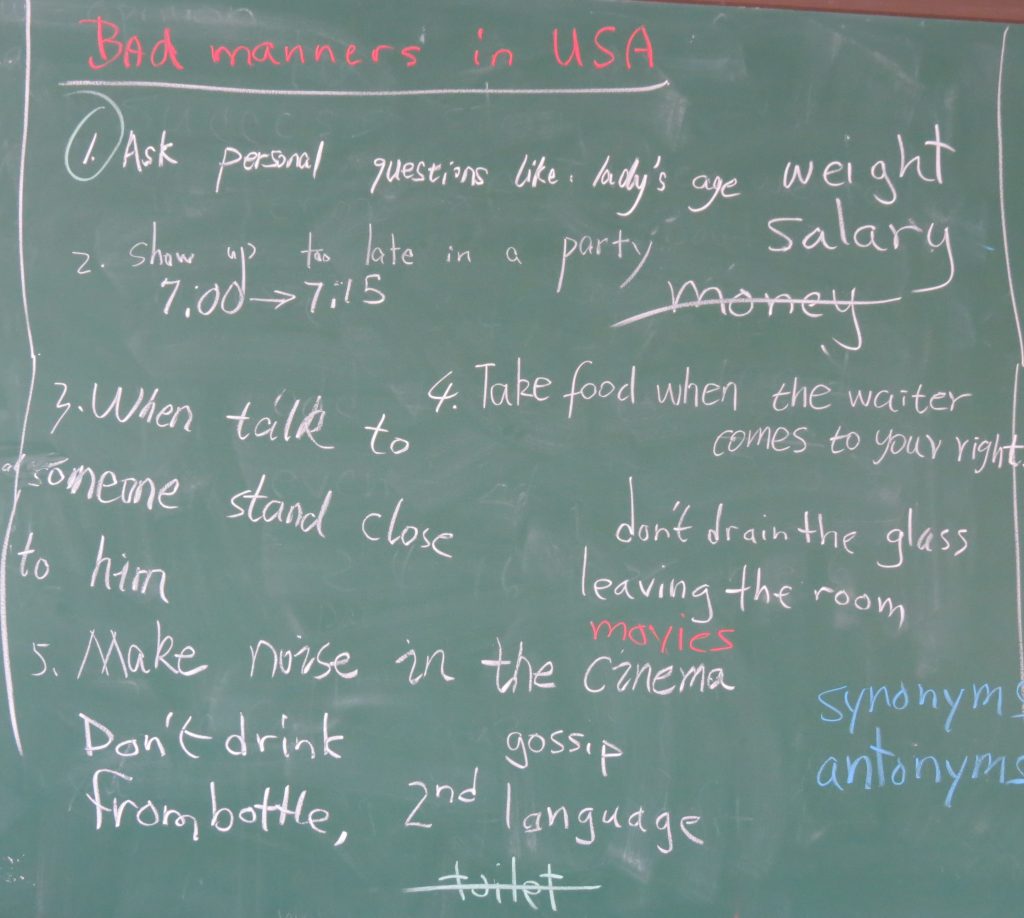 BAd manners in USA
1. Ask personal questions like: lady's age weight
salary
2. show up too late in a party
7:00→7:15
money
3. When talk to
someone stand close
to him
4. Take food when the waiter
comes to your right.
don't drain the glass
leaving the room
movies
5. Make noise in the cinema
Don't drink
from bottle,
gossip
2nd language
toilet
synonyms
antonyms